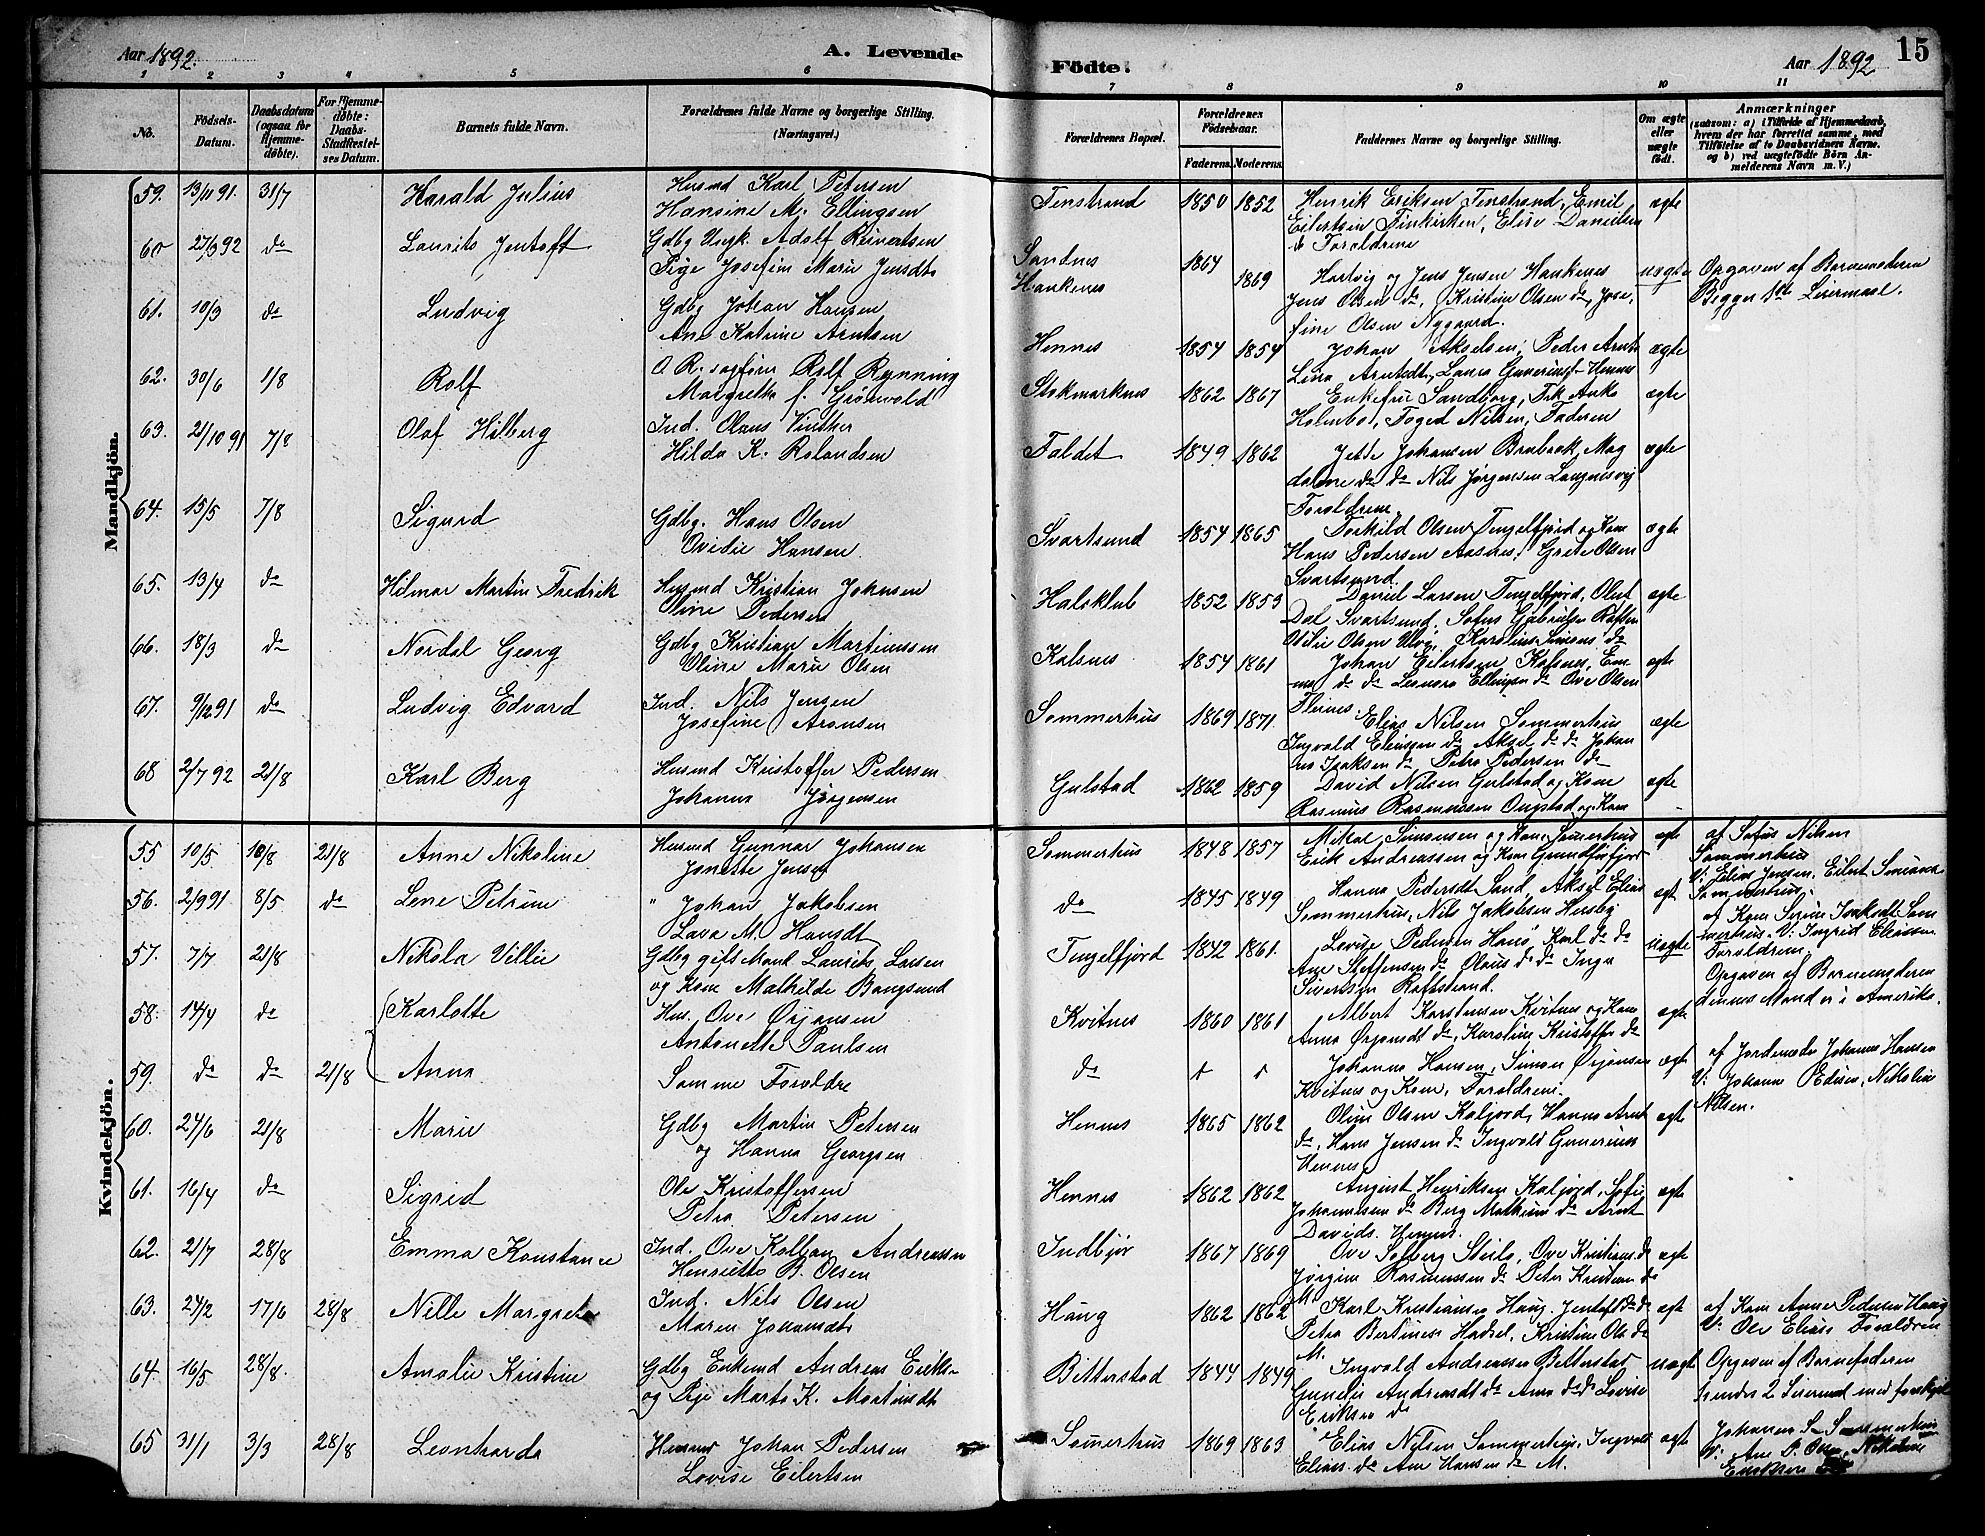 Aar 1892. A. Levende
Födte. Aar 1892 15
1 2 3 4 5 6 7 8 9 10 11
No. Födsels-Datum. Daabsdatum (ogsaa for Hjemmedøbte). For Hjemmedøbte: Daabs-Stadfæstelses Datum. Barnets fulde Navn. Forældrenes fulde Navne og borgerlige Stilling. (Næringsvei.)
Forældrenes Bopæl. Forældrenes Födselsaar. Faderens. Moderens. Faddernes Navne og borgerlige Stilling. Om ægte eller uægte födt. Anmærkninger (saasom: a) i Tilfælde af Hjemmedaab, hvem der har forrettet samme, med Tilföielse af to Daabsvidners Navne. og b) ved uægtefödte Börn Anmelderens Navn m. V.)
Mandkjön.
59. 13/11 91. 31/7 Harald Julius Husmd Karl Petersen
Hansine M. Ellingsen
Fenstrand 1850 1852 Henrik Eriksen Fenstrand, Emil ægte
Eilertsen Finkirken, Elise Danielsen
& Forældrene
60 27/3 92 do Laurits Jentoft Gdbg Ungk. Adolf Reinertsen
Pige Josefine Marie Jensdtr
Sandnes 1864
Haukenes 1869 Hartvig og Jens Jensen Haukenes uægte Opgaven af Barnemoderen
Jens Olsen do, Kristine Olsen do, Jose, Begges 1ste Leiermaal.
fine Olsen Nygaard.
61. 10/3 do Ludvig Gdbg Johan Hansen
Ane Katrine Arntsen
Hennes 1854 1854 Johan Akselsen, Peder Arnts ægte
Lina Arntsdtr, Laura Hennes
62. 30/6 1/8 Rolf O. R. sagfører Rolf Rynning
Margrethe f. Grönvold
Stokmarknes 1862 1867 Enkefru Sandborg, Frk Anka ægte
Holmboe, Foged Nilsen, Faderen
63. 21/10 91 7/8 Olaf Hilberg Ind. Olaus Vinther
Hilda K. Rolandsen
Faldet 1849 1862 Jette Johansen Brobæk, Mag ægte
dalene do do Nils Jørgensen
Forældrene,
64. 15/5 7/8 Sigurd Gdbg. Hans Olsen
Ovidie Hansen
Svartsund 1854 1865 Torkild Olsen Fingelfjord og Kone ægte
Hans Pedersen Aasnes, Grete Olsen
Svartsund.
65. 13/4 do Hilmar Martin Fredrik Husmd Kristian Johnsen
Oline Pedersen
Halsklub 1852 1853 Daniel Larsen Fingelfjord, Oluf ægte
Dal Svartsund, Sofus Gabrielsen Raften
Otilie Olsen Ulvøy, Karoline Simons do
66. 18/3 do Nordal Georg Gdbg Kristian Martinussen
Oline Marie Olsen
Kalsnes 1854 1861 Johan Eilertsen Kalsnes, Em ægte
ma do do Leonora Ellingsen do Ove Olsen
Flernes.
67. 9/12 91 do Ludvig Edvard Ind. Nils Jensen
Josefine Aronsen
Sommerhus 1869 1871 Elias Nilsen Sommerhus ægte
Ingvald Eliassen do Aksel do do Johan
nes Isaksen do, Petra Pedersen do
68 2/7 92 21/8 Karl Berg Husmd Kristoffer Pedersen
Johanna Jørgensen
Gulstad 1862 1859 David Nilsen Gulstad og Kone ægte
Rasmus Rasmussen Ongstad og Kone
Kvindekjön.
55 10/5 10/8 21/8 Anne Nikoline Husmd Gunnar Johansen
Jonette Jensen
Sommerhus 1848 1857 Mikal Simonsen og Kone Sommerhus ægte af Sofus Nilsen
Erik Andreassen og Kone Grundførfjord Sommerhus
V: Elias Jensen, Eilert Simonsen
Sommerhus.
56. 2/9 91 8/5 do Lene Petrine " Johan Jakobsen
Lava M. Hansdtr
do 1845 1849 Hanna Pedersdtr Sand, Aksel Elias ægt
Sommerhus, Nils Jakobsen Hersby
af Kone Sirine Isaksdtr Som
merhus. V: Ingrid Eliassen
Forældrene,
57. 7/7 21/8 Nikola Villie Gdbg gift Mand Laurits Larsen
og Kone Mathilde Bangsund
Fingelfjord 1842 1861. Lovise Pedersen Hanø, Karl do do uægte Opgaven af Barnemoderen
Ane Steffensen do Olaus do do Inga dennes Mand er i Amerika.
Sivertsen Raftstrand.
58. 14/4 do Karlotte Hus. Ove Ørjansen
Antonette Paulsen
Kvitnes 1860 1861 Albert Karstensen Kvitnes og Kone ægte
Anna Ørjansdtr do, Karoline Kristoffer do
59. do do 21/8 Anna Samme Forældre
do Johanna Hansen, Simon Ørjansen ægte af Jordemoder Johanna Hansen
Kvitnes og Kone, Forældrene. V: Johanna Nikoline
Nilsen.
60. 27/6 21/8 Marie Gdbg Martin Petersen
og Hanna Georgsen
Hennes 1865 1862 Oluf Olsen Kaljord, Hanna Arnt ægte
do, Hans Jensen do Ingvald Gunerius
Hennes,
61. 16/4 do Sigrid Ole Kristoffersen
Petra Petersen
Hennes 1862 1862 August Henriksen Kaljord, Sofie ægte
Johannesen do Berg Mathisen do Arnt
Davids. Hennes.
62. 21/7 28/8 Emma Konstanse Ind. Ove Kolban Andreassen
Henriette B. Olsen
Indbjør 1867 1869 Ove Solberg Steilo, Ove Kristians. do ægte
Jørgine Rasmussen do Peter Kristian do
M.
63. 24/2 17/6 28/8 Nille Margrete Ind. Nils Olsen
Maren Johansdtr
Haug 1862 1862 Karl Kristiansen Haug. Jentoft do do ægt af Kone Anne Pedersen Haug
Petra Bertines Hadsel, Kristine Ols do V: Ole Elias Forældrene
M.
64. 16/5 28/8. Amalie Kristine Gdbg Enkemd Andreas Eriks-
og Pige Marta K. Mortensdtr
Bitterstad 1844 1849 Ingvald Andreassen Bitterstad uægt Opgaven af Barnefaderen
Gunelie Andreasdtr do Ane do do Lovise
Eriksen do
65 31/1 3/3 28/8 Leonharda Husmd Johan Pedersen
Lovise Eilertsen
Sommerhus 1869 1863 Elias Nilsen Sommerhus, Ingvald ægte Johannes Sommerhus
Elias. do Ane Hansen do M. V: Ane P. Olsen, Nikoline
Eriksen